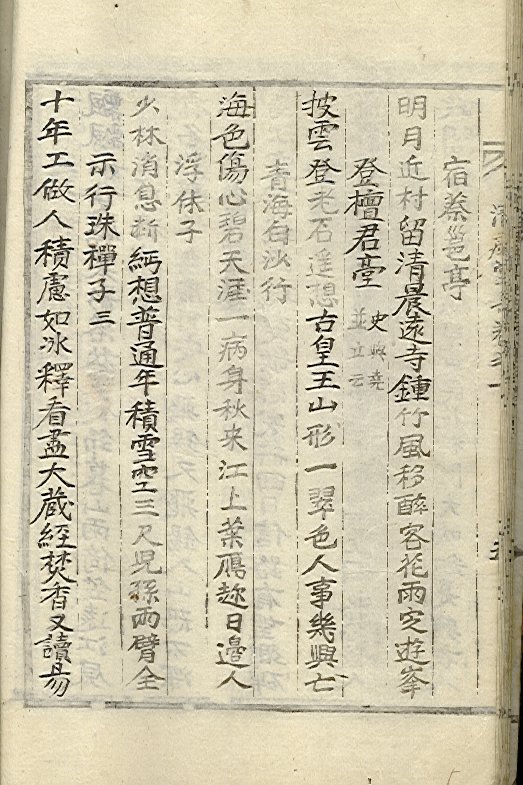 宿蔡邕亭
明月近村留清晨遠寺鍾竹風移醉客花雨定遊峯
登檀君臺 史
並立云
披雲登老石遙想古皇王山形一翠色人事幾興亡
青海白沙行
海色傷心碧天涯一病身秋来江上葉鴈趂日邊人
浮休子
少林消息断 緬想普通年積雪空三尺児孫兩臂全
示行珠禪子三
十年工做人積慮如冰釋看盡大蔵經焚香又讀易